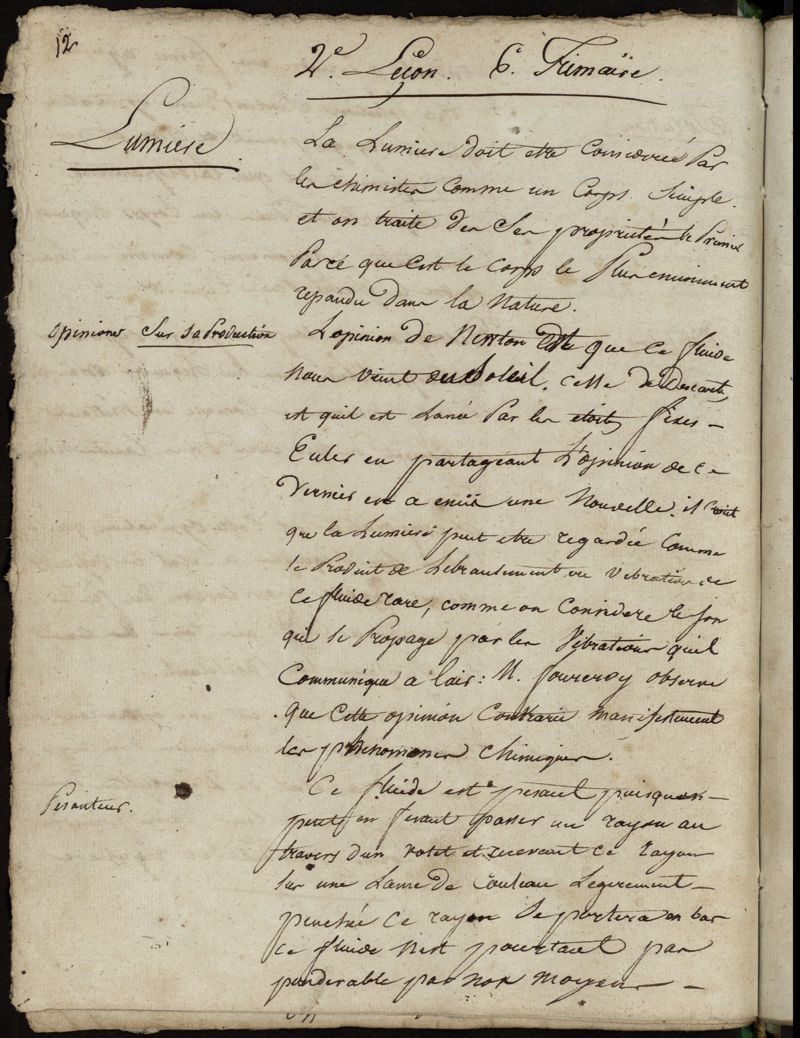 12
2e. Leçon. 6. Frimaire.
Lumiere.
La Lumiere doit etre Considerée Par
les chimistes Comme un Corps Simple.
et on traite des Ses propriétés le Premier
Parcé que c'est le corps le Plus eminement
repandu dans la Nature.
opinions Sur Sa Production
L'opinion de Newton est que Ce fluide
Nous Vient du Soleil. Celle de Descartes,
est qu'il est Lancé Par les etoiles fixes –
Euler en partageant L'opinion de ce
Dernier en a emis une Nouvelle. il croit
que la Lumiere peut etre regardée Comme
le Produit de L'ebranlement ou Vibration de
Ce fluide rare, comme on Considere le son
qui se Propage par les Vibrations qu'il
Communique a l'air : M. fourcroy observe
que Cette opinion Contrarie manifestement
les phenomenes chimiques.
Pesanteur.
Ce fluide est pesant puisqu'on –
peut en fesant passer un rayon au
travers d'un volet et recevant ce rayon
sur une Lame de Couteau Legerement –
penchée Ce rayon Se portera en bas
Ce fluide n'est pourtant pas
ponderable par nos moyens –